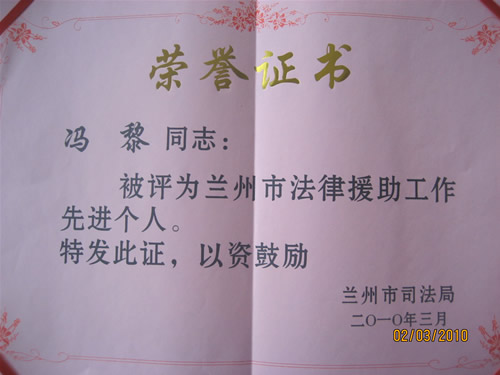 荣誉证书
冯 黎 同志：
被评为兰州市法律援助工作
先进个人。
特发此证，以资鼓励
兰州市司法局
二〇一〇年三月
02/03/2010